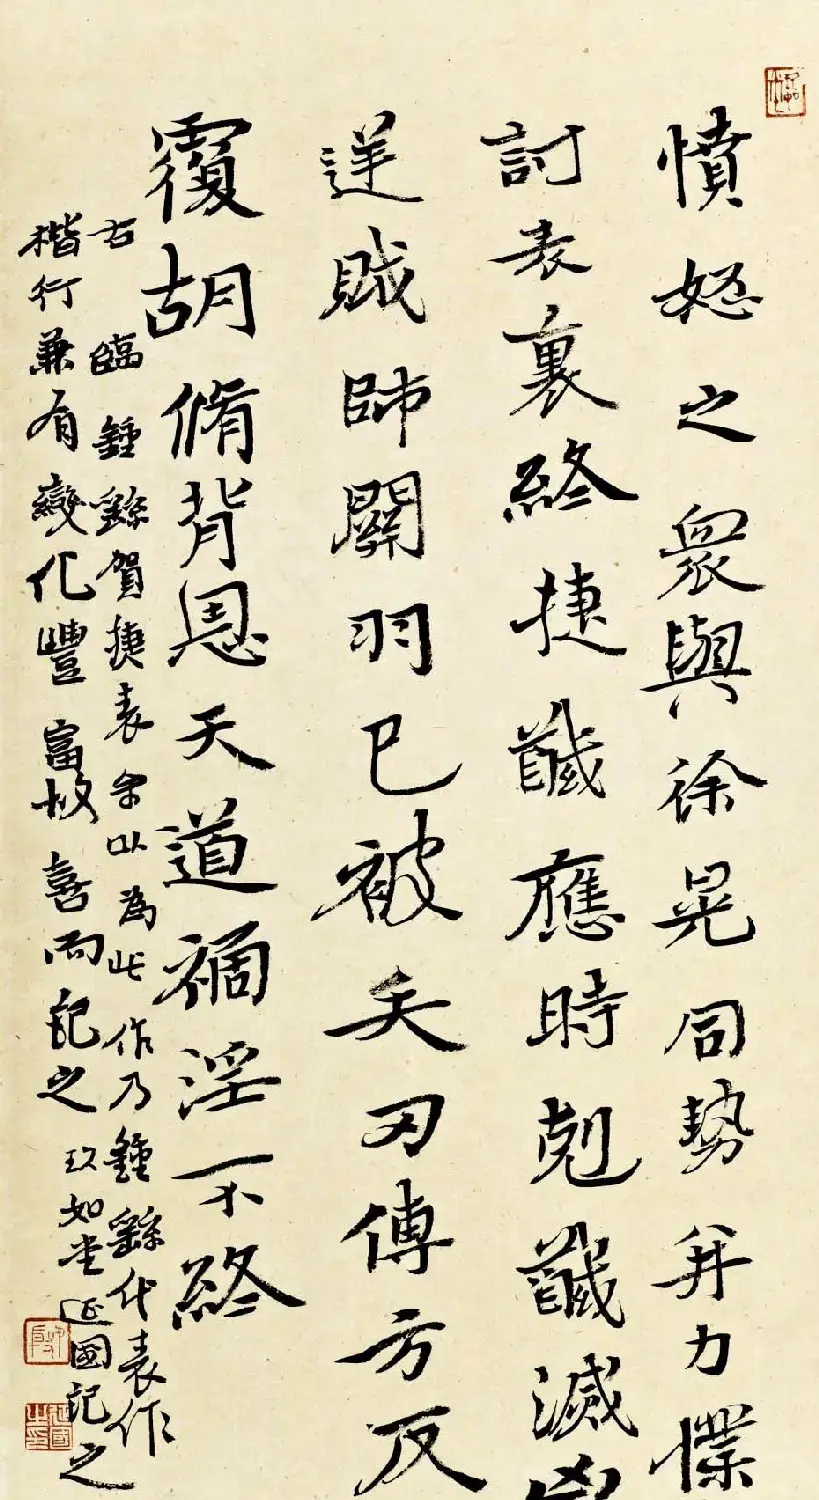 憤怒之衆與徐晃同勢并力撲
討表裏終捷馘應時剋馘滅凶
逆賊帥關羽已被矢刃傅方反
覆胡脩背恩天道禍淫不終
右臨鍾繇賀捷表余以為此作乃鍾繇代表作
楷行兼有變化豐富故喜而記之 玖如堂延國記之